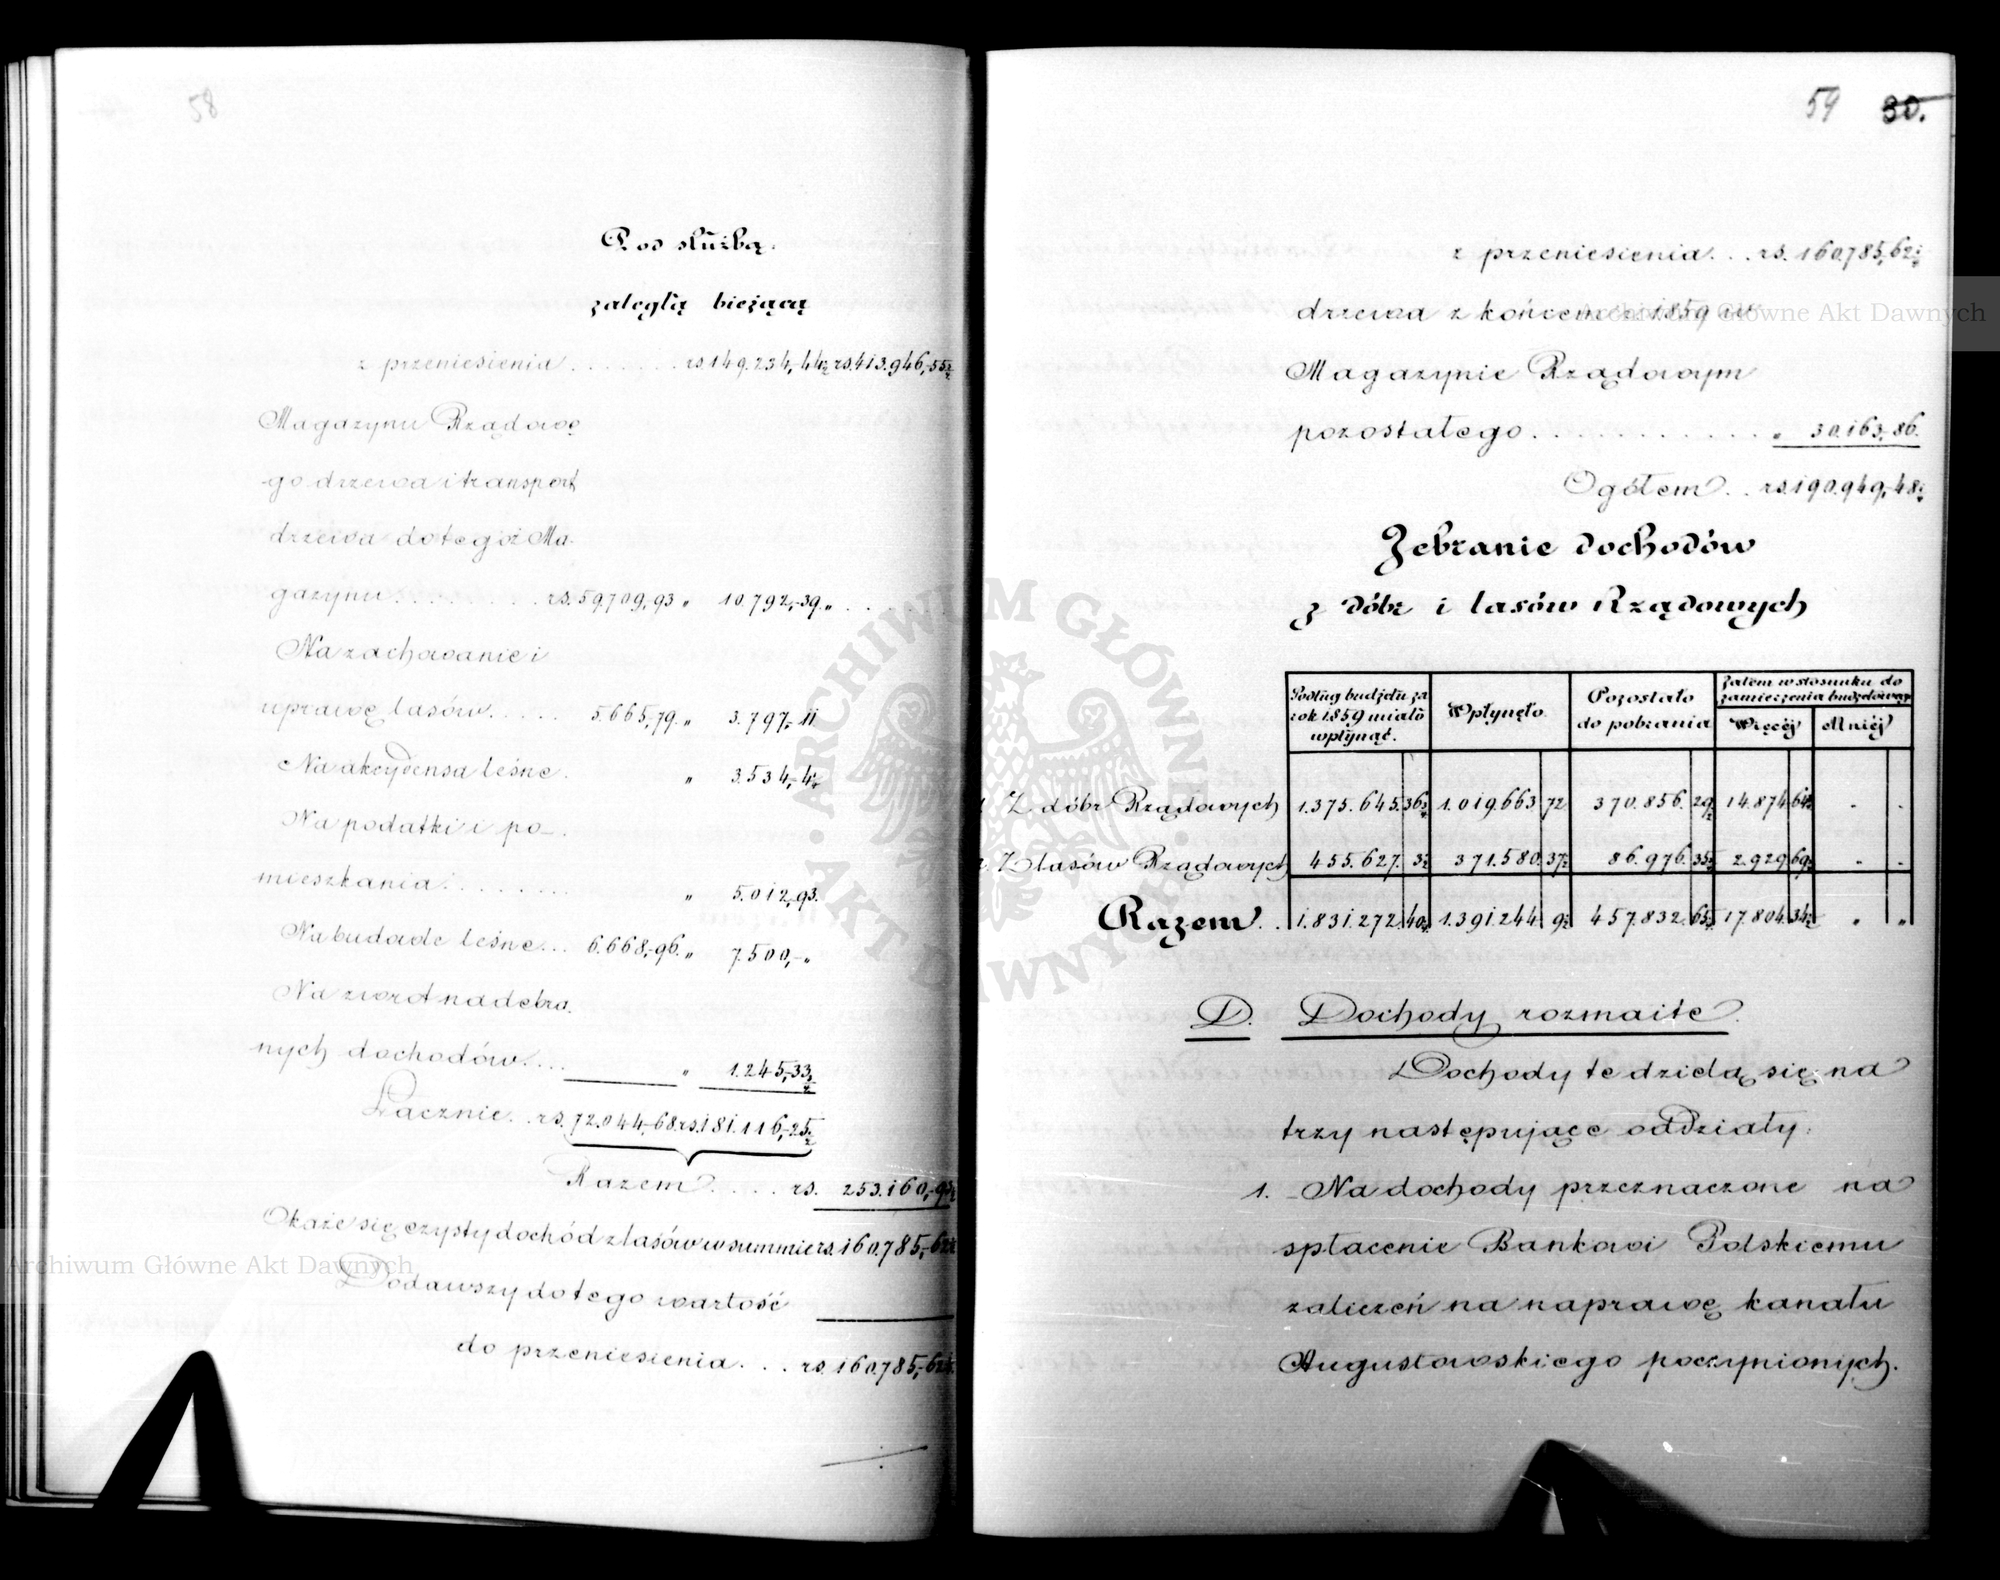 58
Pod służbą
zaległą bieżącą
z przeniesienia . . . . . . . rs. 149.234,-44½ rs. 413.946,-55½
Magazynu Rządowe
-go drzewa i transport
drzewa do tegoż Ma-
gazynu . . . . . . . . rs. 59.709,93 „ 10.792,-39. „
Na zachowanie i
uprawę lasów . . . . . 5.665,-79. „ 3.797,-11
Na akcydensa leśne . „ 3.534,-4
Na podatki i po-
mieszkania . . . . . . . . „ 5.012,-93.
Na budowle leśne . . . 6.668,-96. „ 7.500,- „
Na zwrot nadebra-
nych dochodów . . . . „ 1.245,-33½
Łącznie . . rs. 72.044,-68. rs. 181.116,-25½
Razem . . . . rs. 253.160,-93½
Okaże się czysty dochód z lasów w summie rs. 160.785,-62
Dodawszy do tego wartość
do przeniesienia . . . rs. 160.785,-62
59 30.
z przeniesienia . . . rs. 160.785,-62
drzewa z końcem r. 1859 w
Magazynie Rządowym
pozostałego . . . . . . . . . . . . „ 30.163,-86.
Ogółem . . rs. 190.949,-48
Zebranie dochodów
z dóbr i lasów Rządowych
Podług budżetu za rok 1859 miało wpłynąć. Wpłynęło Pozostało do pobrania Zatem w stosunku do zamierzenia budżetowego
Więcej Mniej
1. Z dóbr Rządowych 1.375.645. 36 1.019.663 72 370.856. 29½ 14.874 64 - -
2. Z lasów Rządowych 455.627. 3½ 371.580. 37½ 86.976. 35 2.929 69 - -
Razem . . 1.831.272. 40 1.391.244 9½ 457.832. 65 17.804. 34 „ „
D. Dochody rozmaite.
Dochody te dzielą się na
trzy następujące oddziały:
1. Na dochody przeznaczone na
spłacenie Bankowi Polskiemu
zaliczeń na naprawę kanału
Augustowskiego poczynionych.
ARCHIWUM GŁÓWNE AKT DAWNYCH
Archiwum Główne Akt Dawnych
Archiwum Główne Akt Dawnych